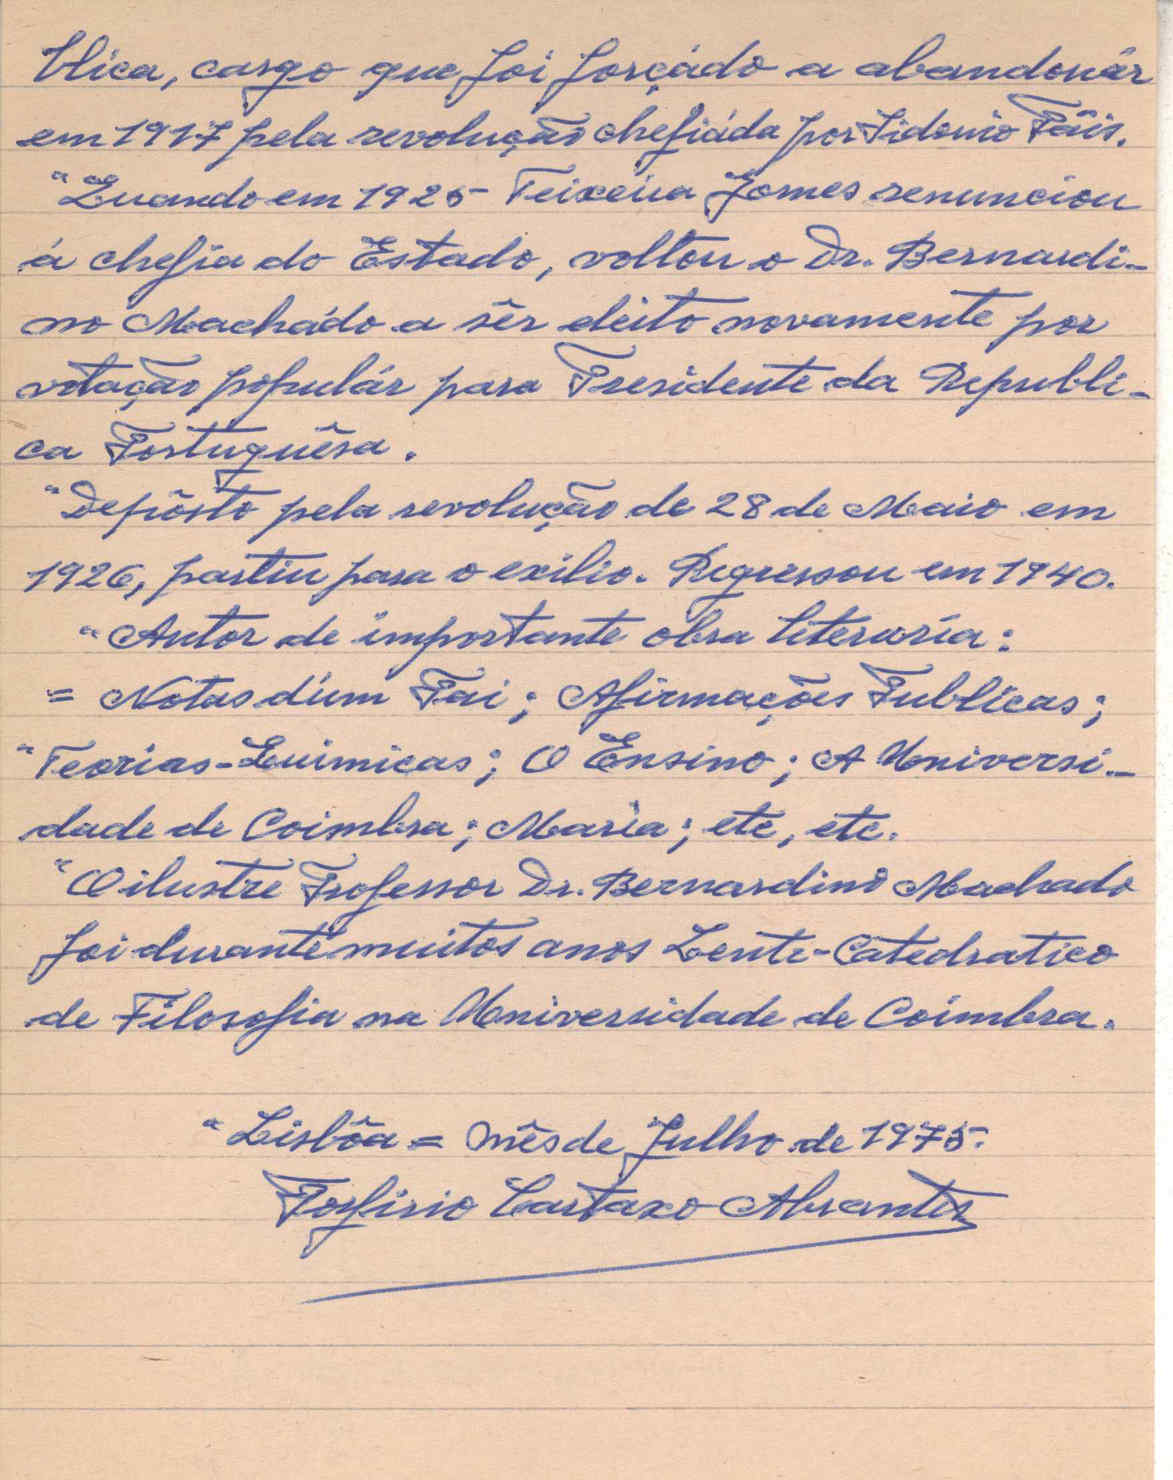 blica, cargo que foi forçádo a abandonár
em 1917 pela revolução chefiáda por Sidonio Páis.
"Quando em 1925 - Teixeira Gomes renunciou
á chefia do Estado, voltou o Dr. Bernardi-
no Macha´do a sêr eleito novamente por
votação populár para Presidente da Republi-
ca Portuguêsa.
"Depôsto pela revolução de 28 de Maio em
1926, partiu para o exilio. Regressou em 1940.
"Autor de importante obra literaría:
= Notas díum Pai; Afirmações Publícas;
"Teorias-Quimicas; O Ensino; A Universi-
dade de Coimbra; María; etc, etc.
"O ilustre Professor Dr. Bernardino Machado
foi durante muitos anos Lente-Catedratico
de Filosofia na Universidade de Coimbra.
"Lisbôa = mês de Julho de 1975.
Porfirio Cartaxo Abrantes